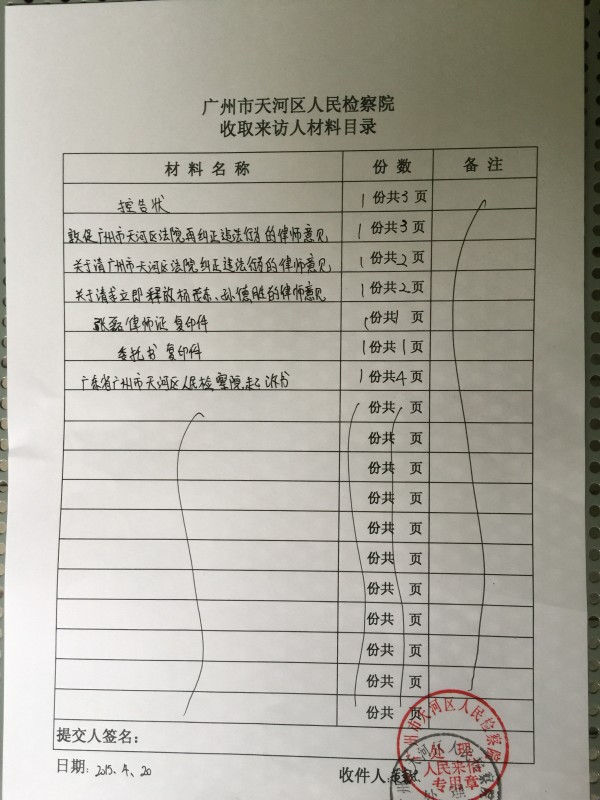 广州市天河区人民检察院
收取来访人材料目录
材料名称 份数 备注
控告状 1份共3页
敦促广州市天河区法院再纠正违法行为的律师意见 1份共3页
关于请广州市天河区法院纠正违法行为的律师意见 1份共2页
关于请求立即释放杨茂东、孙德胜的律师意见 1份共2页
张磊律师证复印件 1份共1页
委托书复印件 1份共1页
广东省广州市天河区人民检察院起诉书 1份共4页
份共 页
份共 页
份共 页
份共 页
份共 页
份共 页
份共 页
份共 页
份共 页
份共 页
份共 页
提交人签名：
日期：2015、4、20 收件人：
广州市天河区人民检察院
处理
人民来信
专用章